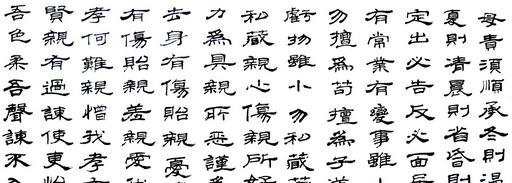 母貴須順承冬則温
夏則凊晨則省昏則
定出必告反必面居
有常業有變事雖
勿擅為苟擅為子道
虧物雖小勿私藏
私藏親心傷親所好
力為具親所惡謹
去身有傷貽親憂
有傷貽親羞親愛
孝何難親憎我孝
賢親有過諫使更怡
吾色柔吾聲諫不入